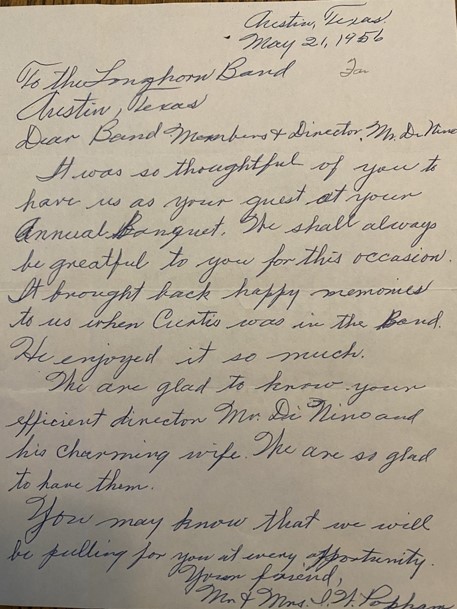 Austin, Texas.
May 21, 1956
To the Longhorn Band
Austin, Texas
Dear Band Members & Director, Mr. Di Nino
It was so thoughtful of you to
have us as your guest at your
Annual Banquet. We shall always
be greatful to you for this occasion.
It brought back happy memories
to us when Curtis was in the Band.
He enjoyed it so much.
We are glad to know your
efficient director Mr. Di Nino and
his charming wife. We are so glad
to have them.
You may know that we will
be pulling for you at every opportunity.
Your friend,
Mr. & Mrs. Popham